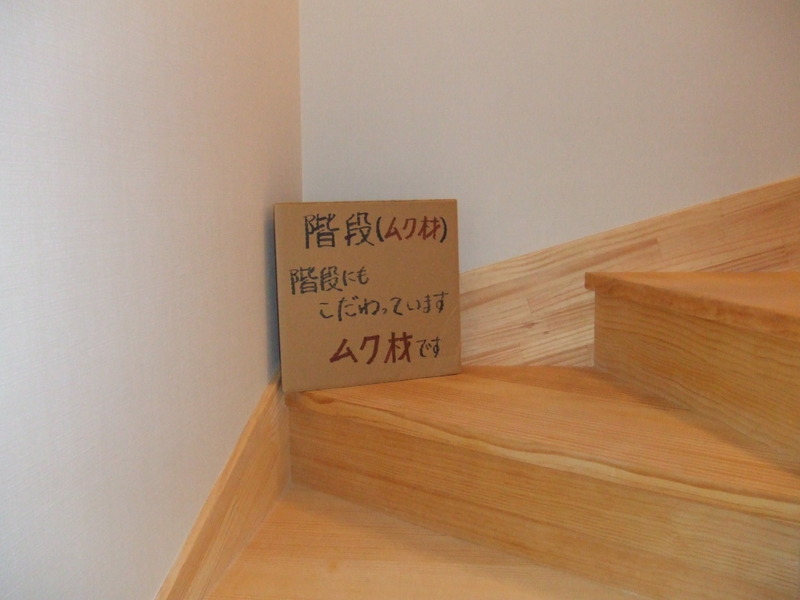 階段(ムク材)
階段にも
こだわっています
ムク材です